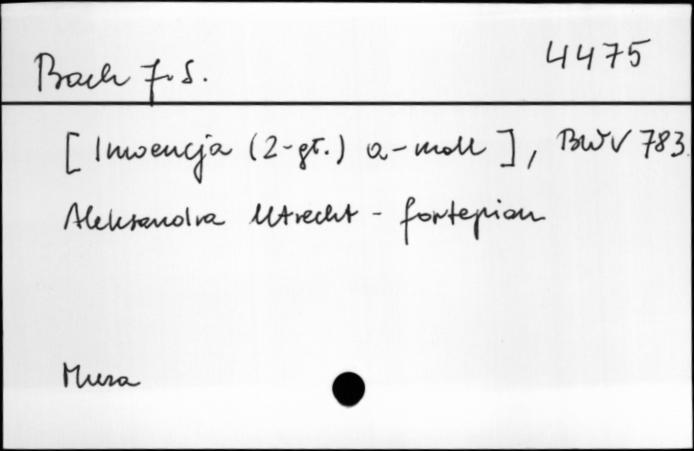 4475
Bach J.S.
[Inwencja (2-gł.) a-moll], BWV 783.
Aleksandra Utrecht - fortepian
Muza